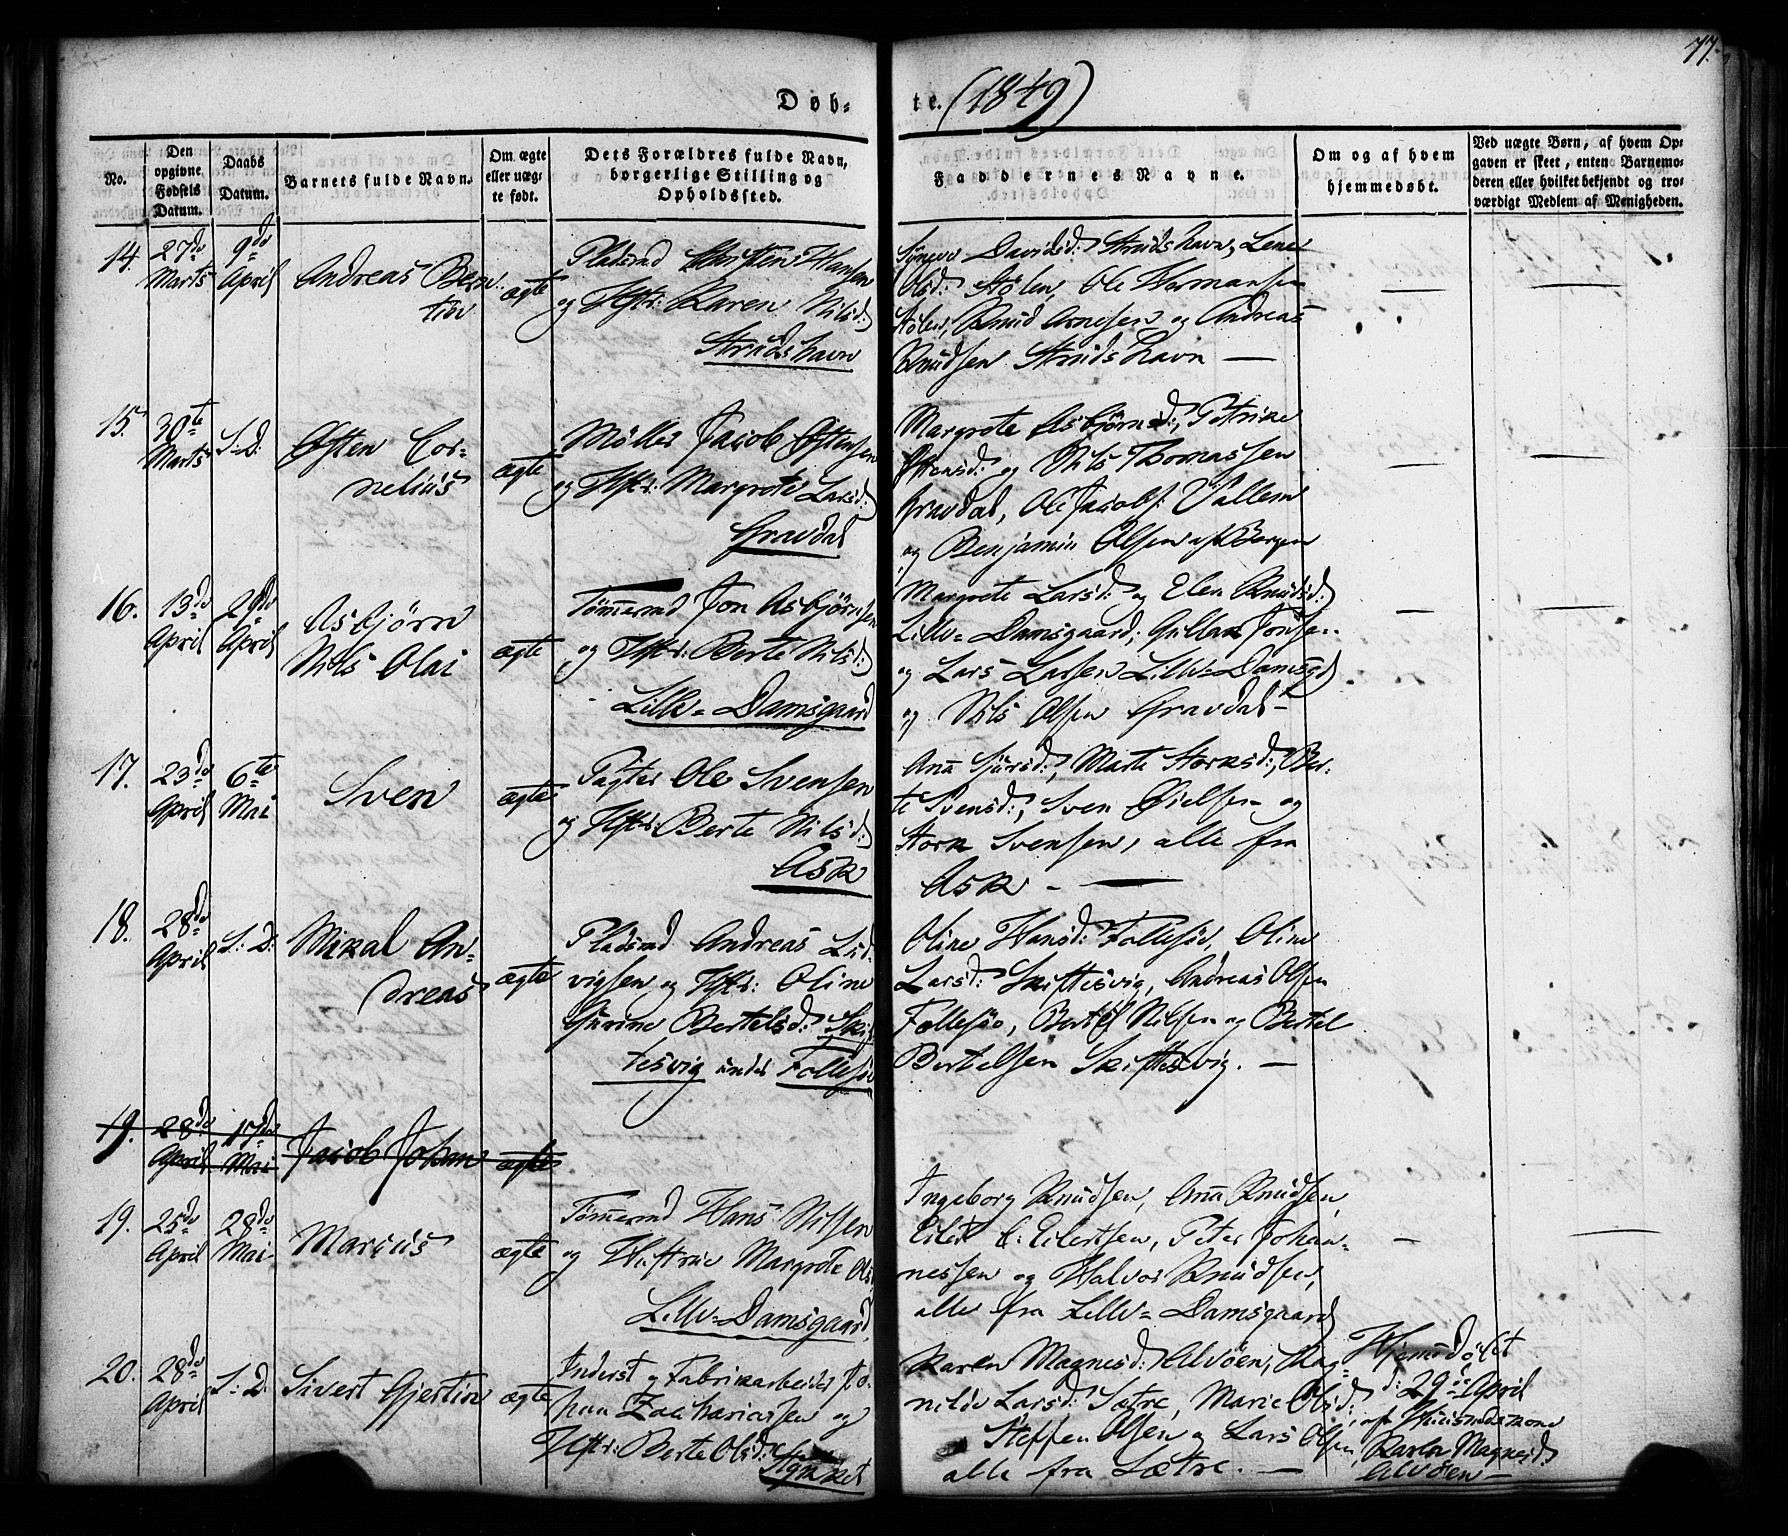 77.
Døb-
te. (1849)
No.
Den opgivne Fødsels Datum.
Daabs Datum.
Barnets fulde Navn.
Om ægte eller uægte født.
Dets Forældres fulde Navn, borgerlige Stilling og Opholdssted.
Faddernes Navne.
Om og af hvem hjemmedøbt.
Ved uægte Børn, af hvem Opgaven er skeet, enten Barnemoderen eller hvilket bekjendt og troværdigt Medlem af Menigheden.
14. 27de Marts 9de April
Andreas Bern-
tin
ægte
Pladsmd Christen Hansen
og Hstr: Karen Nilsd:
Strudshavn
Davidsd: Strudshavn, Lene
Olsd: Stølen, Ole Hermansen
Stølen, Knud Arnesen og Andreas
Knudsen Strudshavn —
15. 30te Marts S. D.
Østen Cor-
nelius
ægte
Møller Jacob Østensen
og Hstr: Margrete Larsd:
Gravdal
Margrete Asbjørnsd:, Petrike
Østensd: og Nils Thomassen
Gravdal, Ole Jacobs: Vallem
og Benjamin Olsen af Bergen
16. 13de April 29de April
Asbjørn
Nils Olai
ægte
Tømmermd Jon Asbjørnsen
og Hstr: Berte Nilsd:
Lille-Damsgaard
Margrete Larsd: og Elen Knudsd:
Lille-Damsgaard, Jonsen
og Lars Larsen Lille-Damsgd
og Nils Olsen Gravdal —
17. 23de April 6te Mai
Sven
ægte
Pagter Ole Svensen
og Hstr: Berte Nilsd:
Ask
Anna Sjursd:, Marte Storksd:, Ber-
te Svensd:, Sven og
Stork Svensen, alle fra
Ask —
18. 28de April S: D:
Mikal An-
dreas
ægte
Pladsmd Andreas Lud-
vigsen og Hstr: Oline
Gurine Bertelsd: Skif-
tesvig under Follesøe
Oline Hansd: Follesøe, Oline
Larsd: Skiftesvig, Andreas Olsen
Follesøe, Bertel Nilsen og Bertel
Bertelsen Skiftesvig. —
19. 28de April 17de Mai Jacob Johan ægte
19. 25de April 28de Mai
Marius
ægte
Tømmermd Hans Nilsen
og Hustrue Margrete Ols
Lille-Damsgaard
Ingeborg Knudsen, Anna Knudsen,
Eilert E. Eilertsen, Peter Johan-
nessen og Halvor Knudsen,
alle fra Lille-Damsgaard
20. 28de April S: D.
Sivert Gjertin
ægte
Inderst og Fabrikarbeider Jo-
han Zachariassen og
Hstr: Berte Olsd:
Karen Magnesd: Alvøen, Rag-
nilde Larsd: Sætre, Marie Olsd:
Steffen Olsen og Lars Olsen,
alle fra Sætre. —
Hjemmdøbt
d: 29de April
af Huusmdskone
Karen Magnesd:
Alvøen —